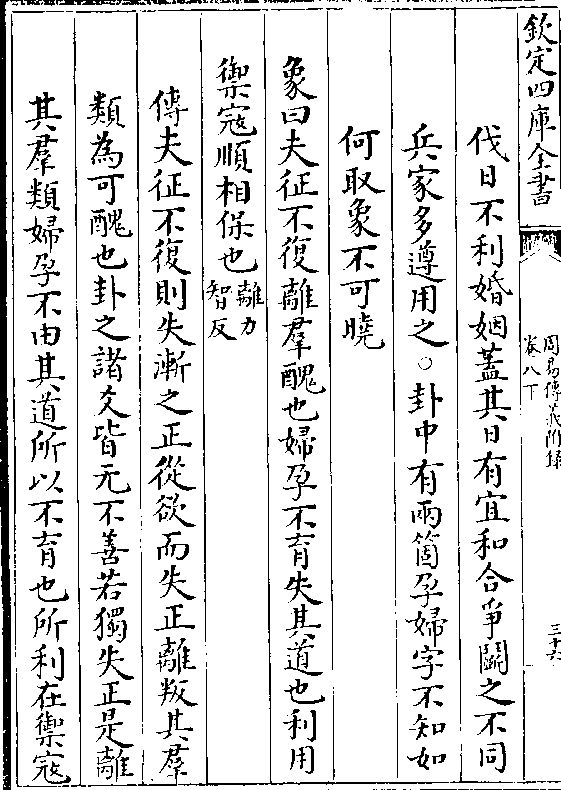 欽定四庫全書
周易傳義附錄
卷八下
三十六
伐日不利婚姻蓋其日有宜和合爭鬭之不同
兵家多遵用之○卦中有兩箇孕婦字不知如
何取象不可曉
象曰夫征不復離羣醜也婦孕不育失其道也利用
禦寇順相保也離力智反
傳夫征不復則失漸之正從欲而失正離叛其羣
類為可醜也卦之諸爻皆无不善若獨失正是離
其羣類婦孕不由其道所以不育也所利在禦寇